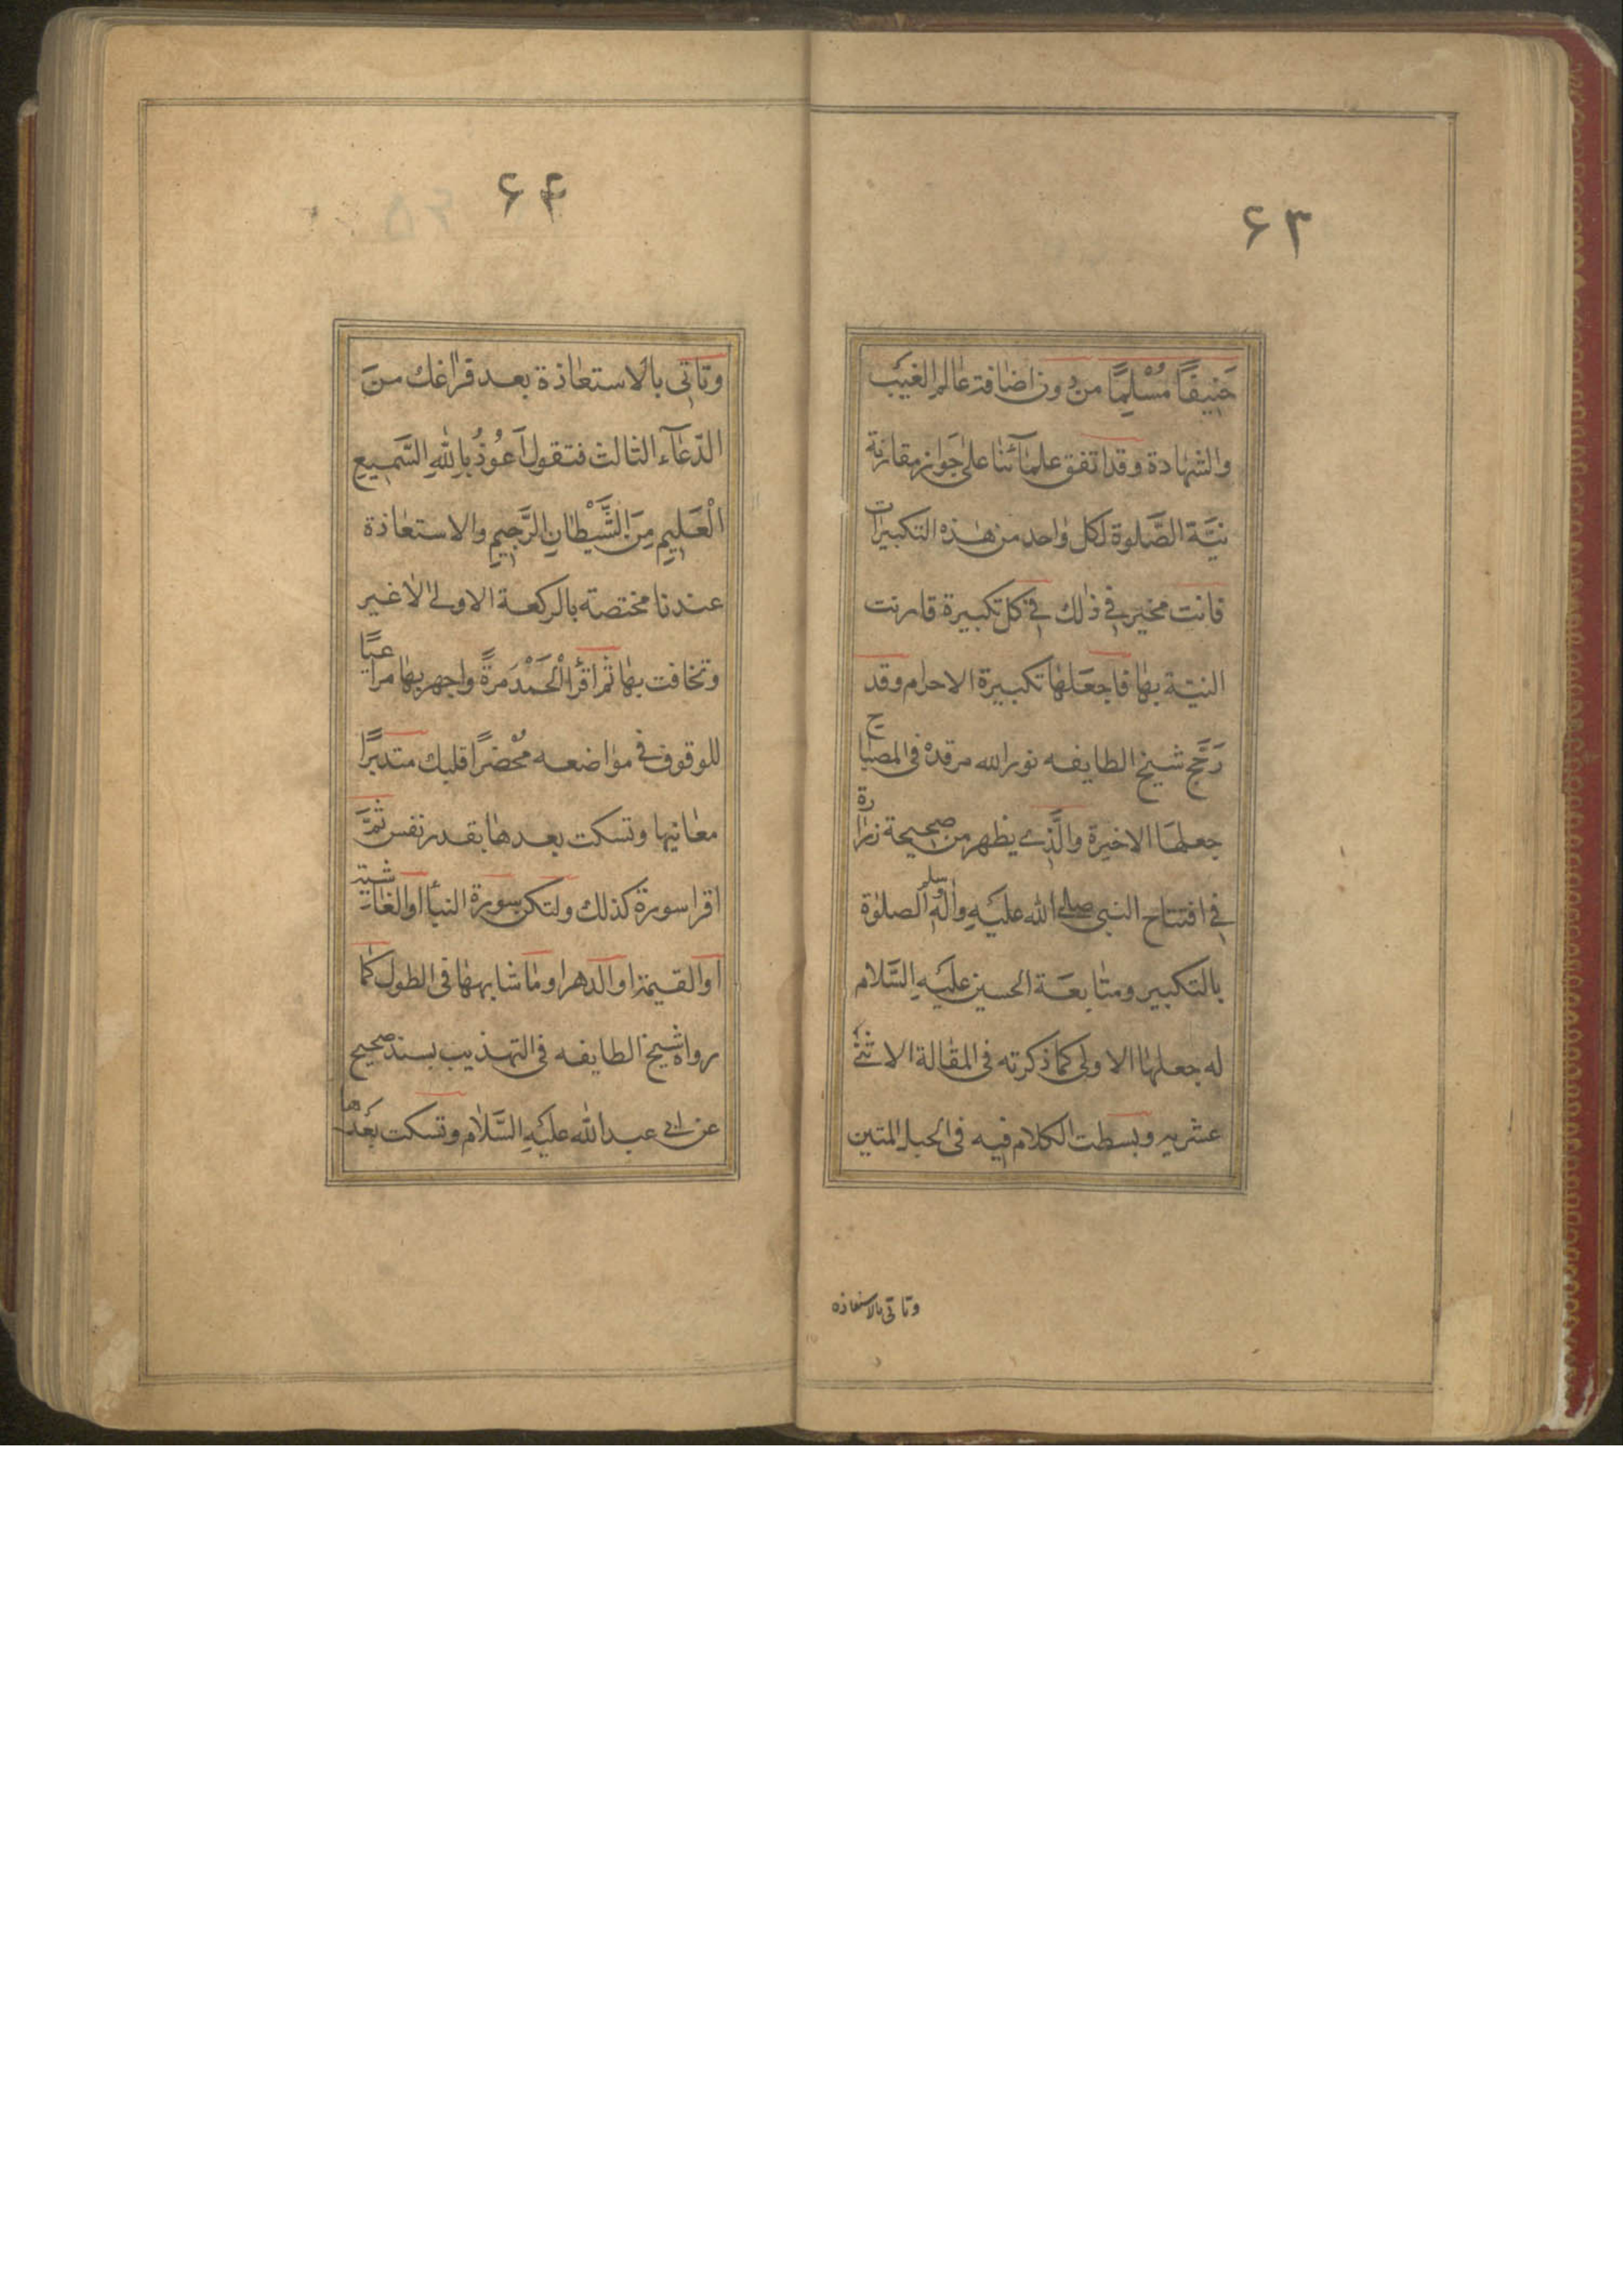 ۶۳
حَنِيفًا مُسْلِمًا من دون اضافة عالم الغيب
والشهادة وقد اتفق علمآئنا على جواز مقارنة
نيّة الصّلوة لكل واحد من هذه التكبيرات
فانت مخير في ذلك في كل تكبيرة قارنت
النيّة بها فاجعلها تكبيرة الاحرام وقد
رَجَّح شيخ الطايفه نور الله مرقده فى المصباح
جعلها الاخيرة والّذي يظهر من صحيحة زرارة
في افتتاح النبى صلى الله عليه وآله وسلم الصلوة
بالتكبير ومتابعة الحسين عليه السَّلام
له جعلها الاولى كما ذكرته فى المقالة الاثنى
عشريه وبسطت الكلام فيه فى الحبل المتين
وتاتى بالاستعاذه
۶۴
وتاتى بالاستعاذة بعد فراغك منَ
الدّعآء الثالث فتقول اَعُوذُ بِاللهِ السَّميعِ
الْعَليمِ مِنَ الشَّيْطانِ الرَّجيمِ والاستعاذة
عندنا مختصة بالركعة الاولى لاغير
وتخافت بها ثم اقرأ الْحَمْدَ مَرةً واجهر بها مراعيًا
للوقوف في مواضعه مُحْضرًا قلبك متدبرًا
معانيها وتسكت بعدها بقدر نفس ثمَّ
اقرا سورة كذلك ولتكن سورة النبأ او الغاشية
او القيمة او الدهر او ما شابهها فى الطول كما
رواه شيخ الطايفه فى التهذيب بسند صحيح
عن ابي عبد الله عليهِ السَّلام وتسكت بَعْدها